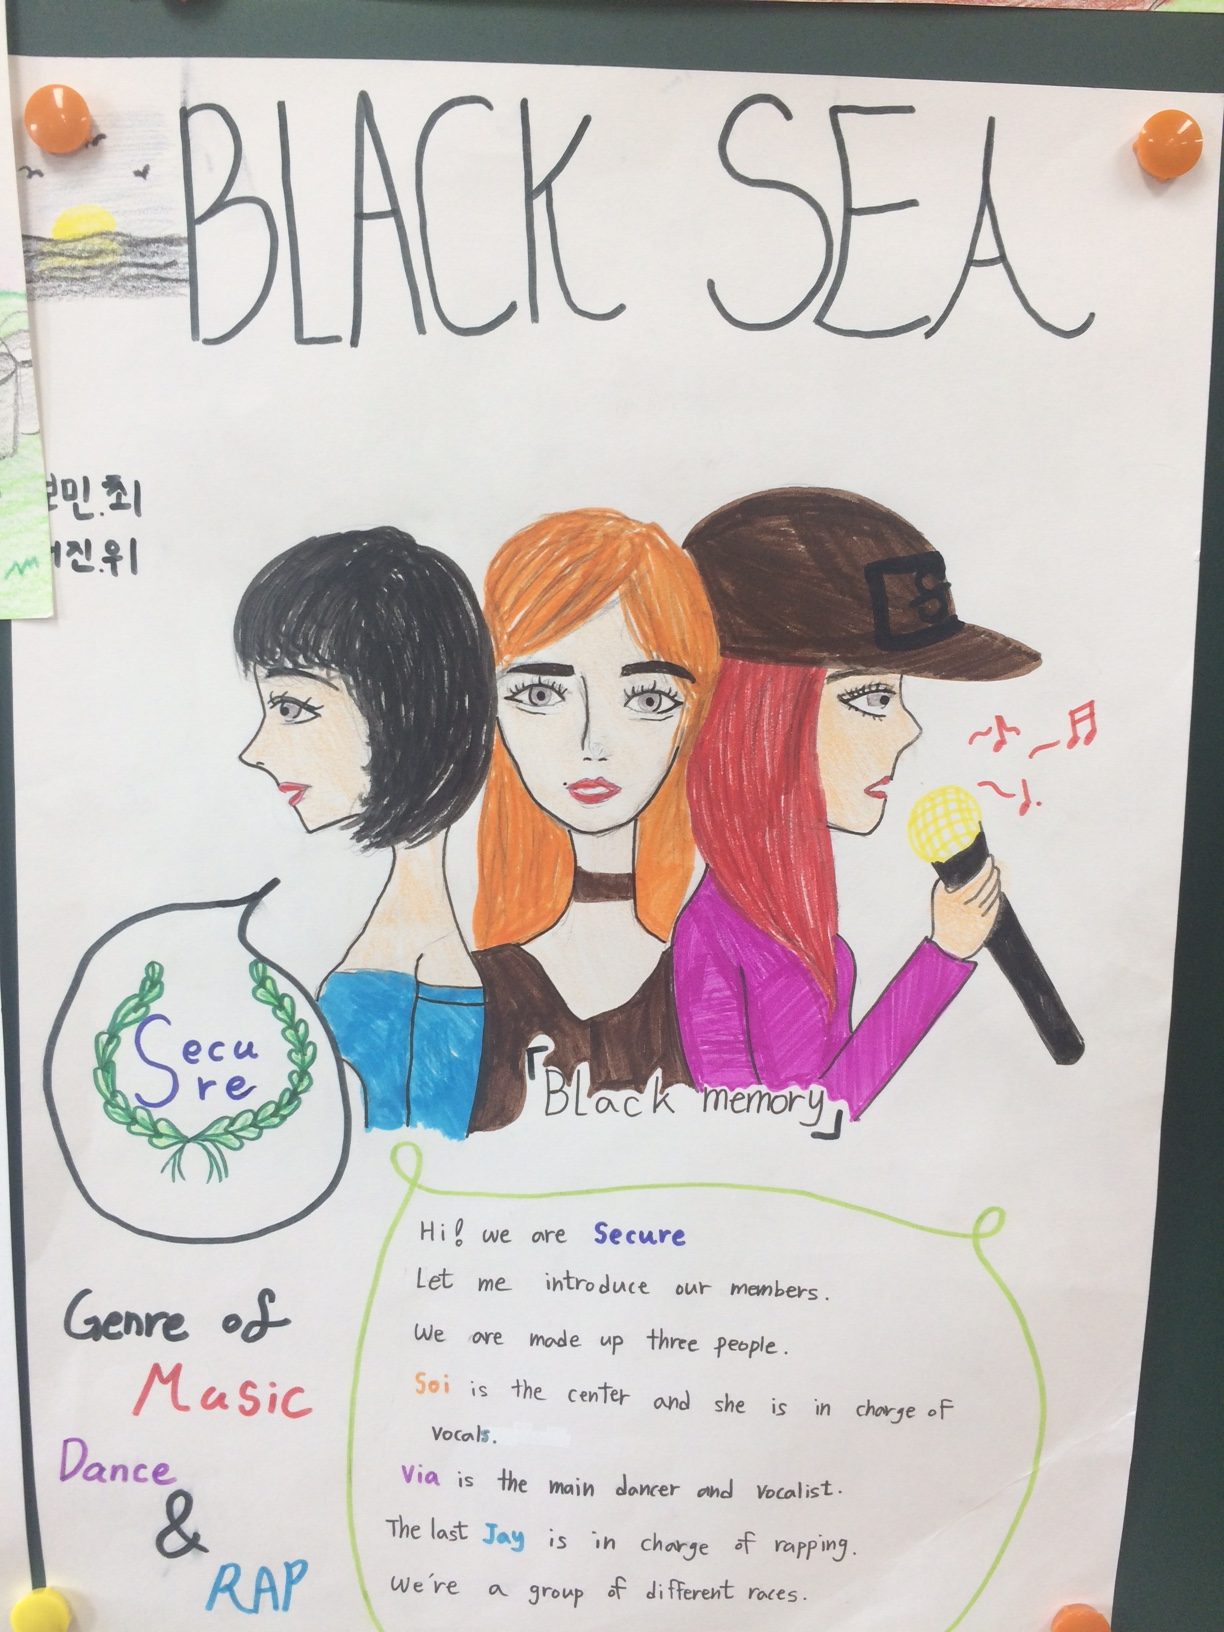 BLACK SEA
민.최
진.위
Secu
re
「Black memory」
Genre of
Music
Dance
&
RAP
Hi! we are Secure
Let me introduce our members.
We are made up three people.
Soi is the center and she is in charge of
vocals.
Via is the main dancer and vocalist.
The last Jay is in charge of rapping.
We're a group of different races.